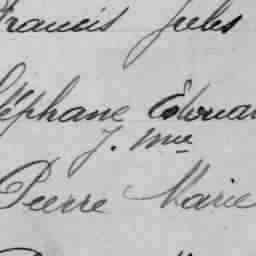 Francis Jules
Stéphane Édouar
J. mue
Pierre Marie